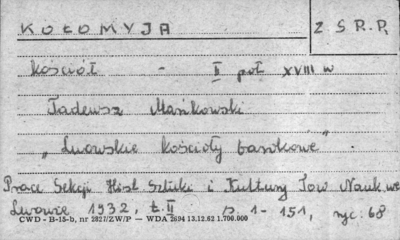 KOŁOMYJA
Z S R.R
kościół - II poł XVIII w
Tadeusz Mańkowski
"Lwowskie kościoły barokowe".
Prace Sekcji Hist Sztuki i Kultury Tow Nauk we
Lwowie 1932, t. II s. 1-151, ryc: 68
CWD - B-15-b, nr 2827/ZW/P — WDA 2694 13.12.62 1.700.000